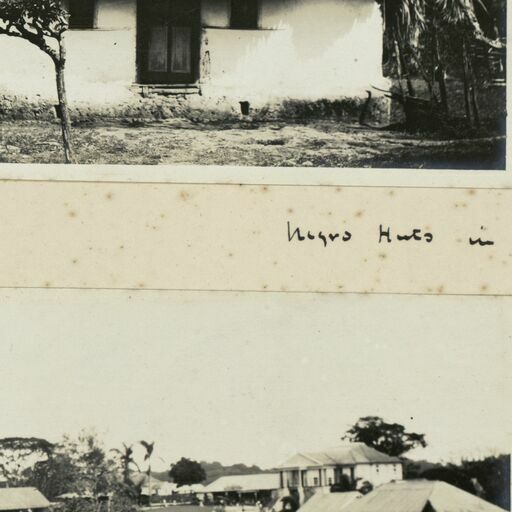 Negro Huts in